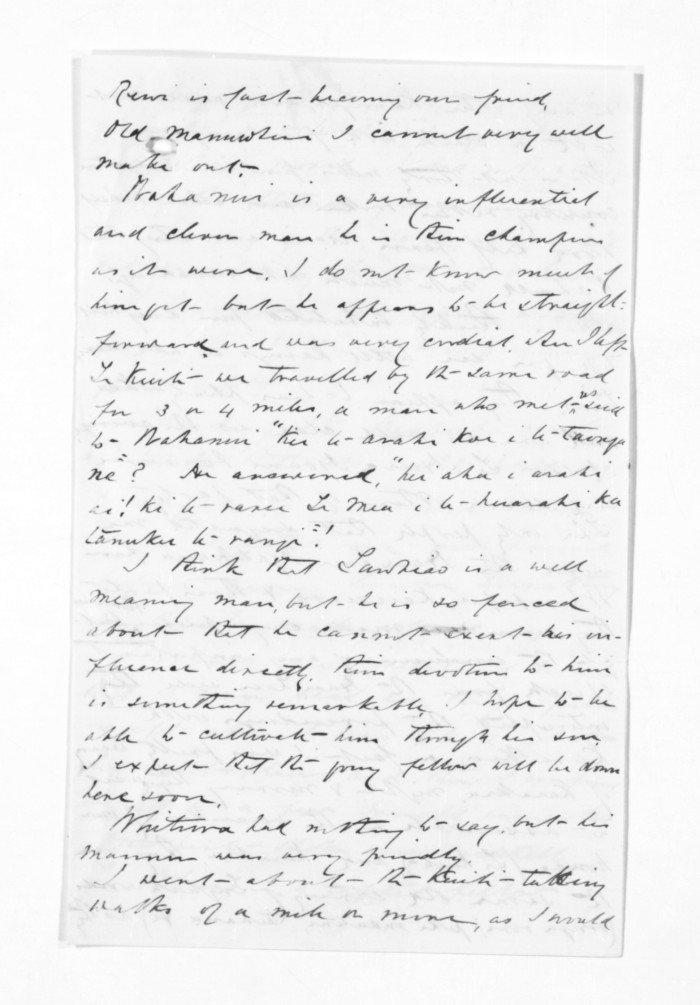 Rewi is fast becoming our friend,
Old Manuwhiri I cannot very well
make out.
Wahanui is a very influential
and clever man he is their champion
as it were, I do not know much of
him yet but he appears to be straight-
forward and was very cordial. As I left
Te Kuiti we travelled by the same road
for 3 or 4 miles, a man who met us said
to Wahanui "Kei te arahi koe i te taonga
nē"? He answered, "hei aha i arahi
ai! ki te Te Mea i te huarahi ka
tānuku te rangi"!
I think that Tawhiao is a well
meaning man, but he is so fenced
about that he cannot exert his in-
fluence directly, their devotion to him
is something remarkable. I hope to be
able to cultivate him through his son,
I expect that the young fellow will be down
here soon.
Whitiora had nothing to say, but his
manner was very friendly.
I went about the Kuiti taking
walks of a mile or more, as I would